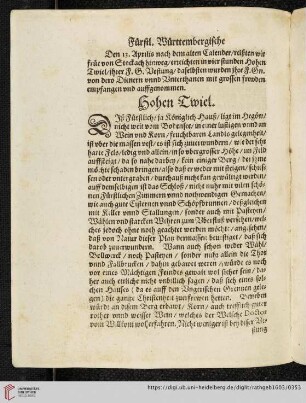 Fürstl. Württembergische
Den 13. Aprilis nach dem alten Calender, raißten wir
früe von Stockach hinweg, erreichten in vier stunden Hohen
Twiel, ihrer F. G. Vestung, daselbsten wurden ihre F. Gn.
von dero Dienern vnnd Vnterthanen mit grossen frewden
empfangen vnd auffgenommen.
Hohen Twiel.
Diß Fürstlich, ja Königlich Hauß, ligt im Hegöw,
nicht weit vom Bodensee, in einer lustigen vnnd an
Wein vnd Korn, fruchtbaren Landts gelegenheit,
ist vber die massen vest, es ist sich zuverwundern, wie der sehr
harte Felß, ledig vnd allein, in so vbergrosser Höhe, im Feld
auffsteigt, da so nahe darbey, kein einiger Berg, der jhme
möchte schaden bringen, also daß er weder mit steigen, schies-
sen oder vntergraben, durchauß nicht kan gewältigt werden,
auff demselbigen ist das Schloß, nicht nur mit vilen schö-
nen Fürstlichen Zimmern vnnd nothwendigen Gemachen,
wie auch guten Cysternen vnnd Schöpffbrunnen, deßgleichen
mit Keller vnnd Stallungen, sonder auch mit Pasteyen,
Wählen vnd starcken Wehren zum Vberfluß versehen, wel-
ches jedoch ohne noth geachtet werden möchte, angesehen,
daß von Natur dieser Platz dermassen bevestiget, daß sich
darab zuverwundern. Wann auch schon weder Wähl,
Bollwerck, noch Pasteyen, sonder nuhr allein die Thor
vnnd Fallbrucken, dahin gebawet weren, würde es noch
vor eines Mächtigen Feindes gewalt wol sicher sein, da-
her auch etliche nicht vnbillich sagen, daß sich eines sol-
chen Hauses (da es auff den Vngerischen Grentzen gele-
gen) die gantze Christenheit zuerfrewen hette. Beneben
würdt an disem Berg erbawt, Korn, auch trefflich guter
rother vnnd weisser Wein, welches der Welsche Doctor
vom Walbom wol erfahren. Nichts weniger ist bey diser Ve-
stung
UNIVERSITÄTS-BIBLIOTHEK HEIDELBERG
http://digi.ub.uni-heidelberg.de/diglit/rathgeb1603/0353